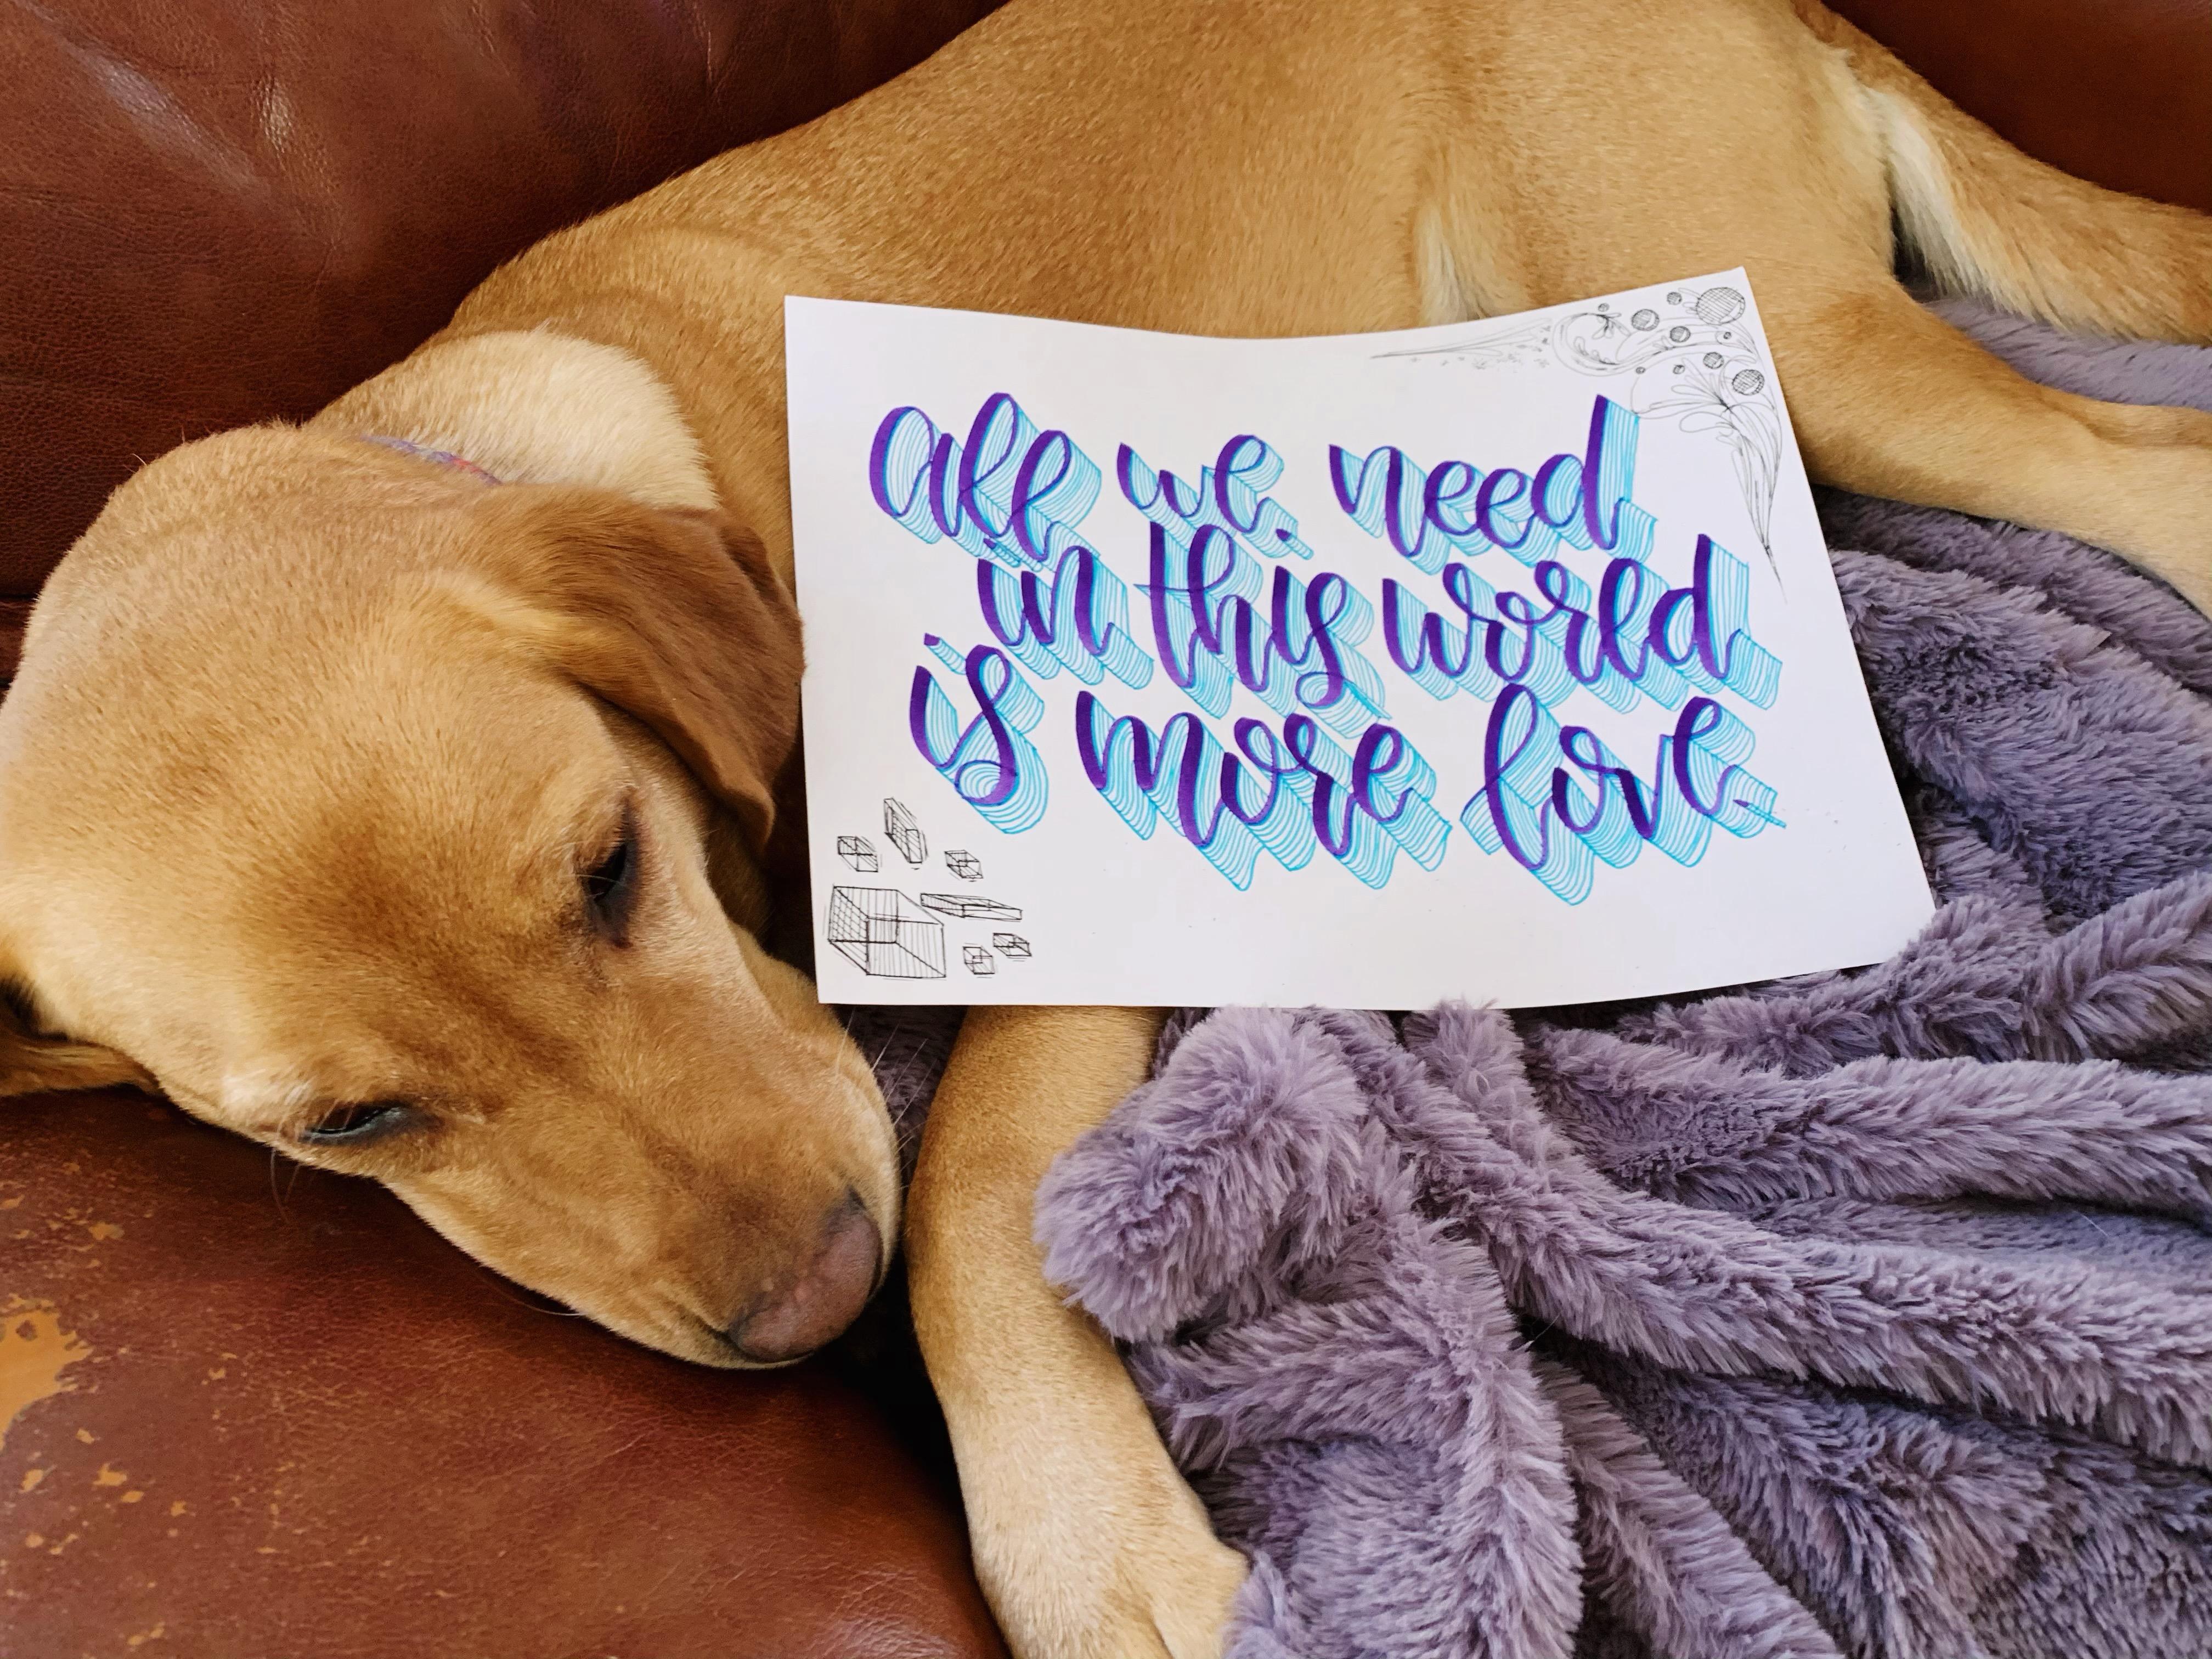 all we need
in this world
is more love